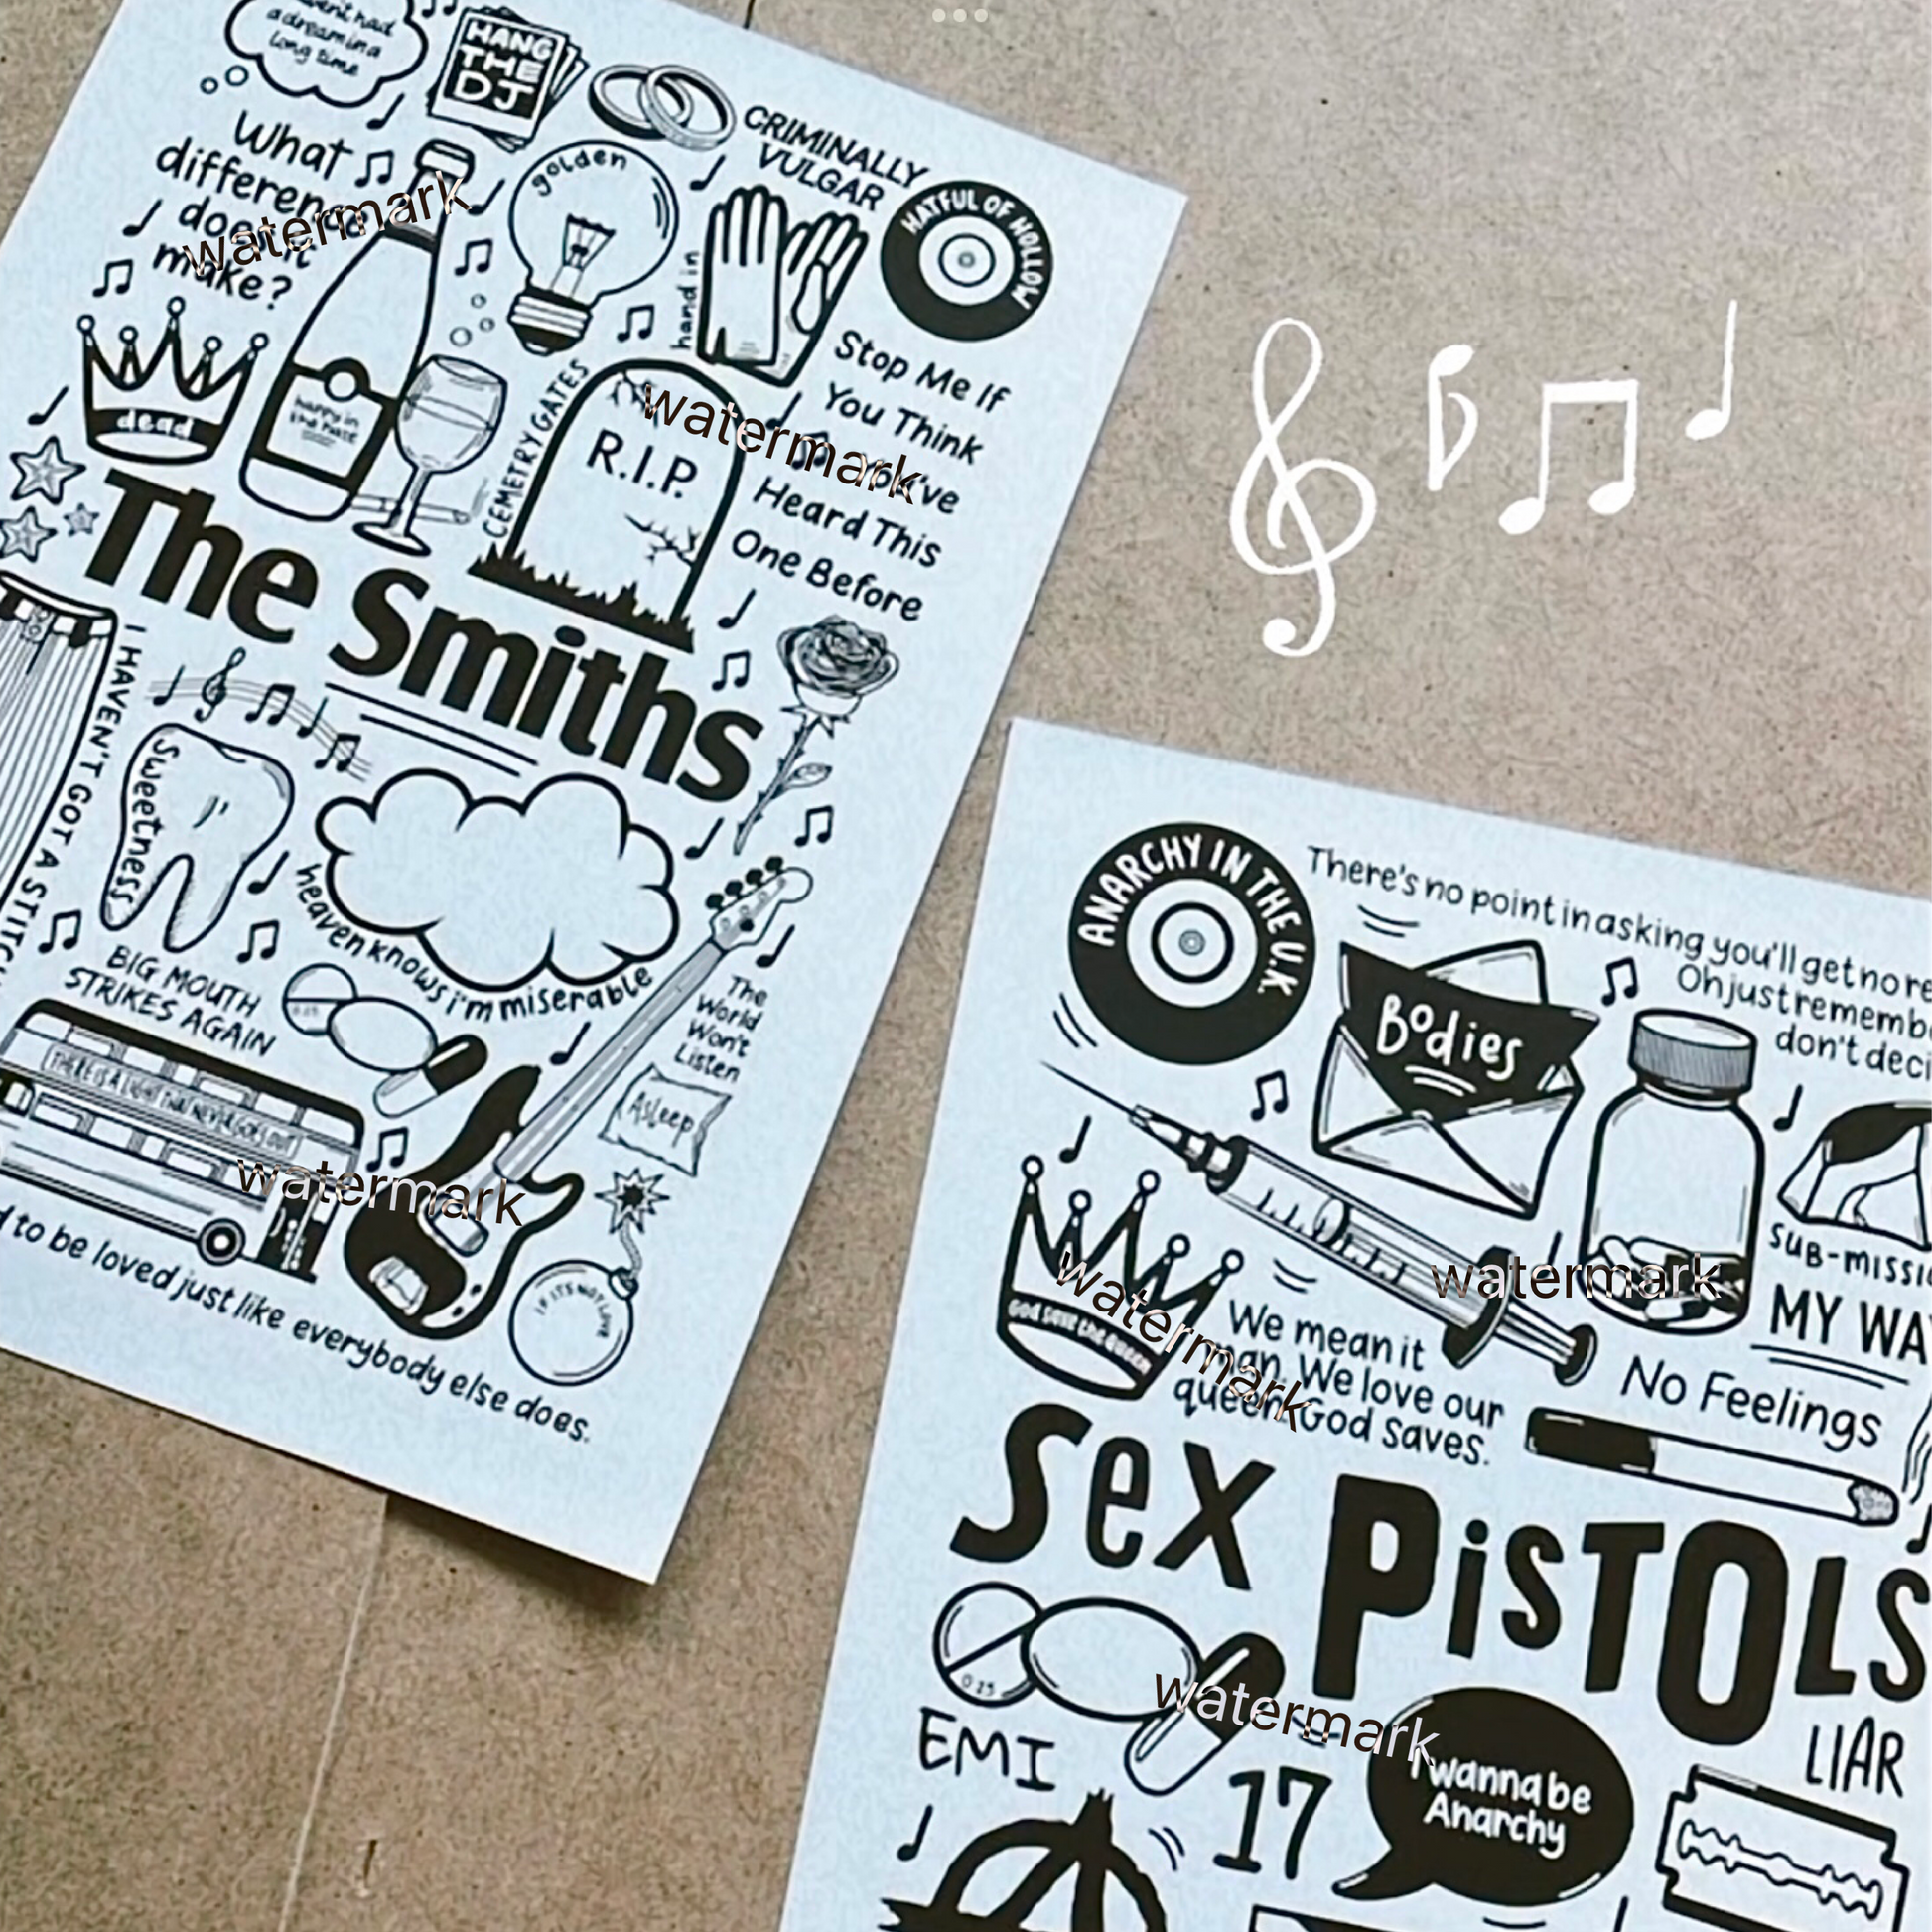 a dream in a
long time
HANG
THE
DJ
What
difference
does it
make?
golden
CRIMINALLY
VULGAR
HATFUL OF HOLLOW
hand in
dead
happy in
the haze
CEMETRY GATES
R.I.P.
Stop Me If
You Think
You've
Heard This
One Before
The Smiths
I HAVEN'T GOT A STITCH
Sweetness
heaven knows i'm miserable
BIG MOUTH
STRIKES AGAIN
The
World
Won't
Listen
Asleep
THERE IS A LIGHT THAT NEVER GOES OUT
IF IT'S NOT LOVE
to be loved just like everybody else does.
ANARCHY IN THE U.K.
There's no point in asking you'll get no re
Oh just rememb
don't deci
Bodies
SUB-MISSI
MY WA
God save the Queen
We mean it
man. We love our
queen. God saves.
No Feelings
Sex PiSTOLS
0.25
EMI
17
I wanna be
Anarchy
LIAR
watermark
watermark
watermark
watermark
watermark
watermark